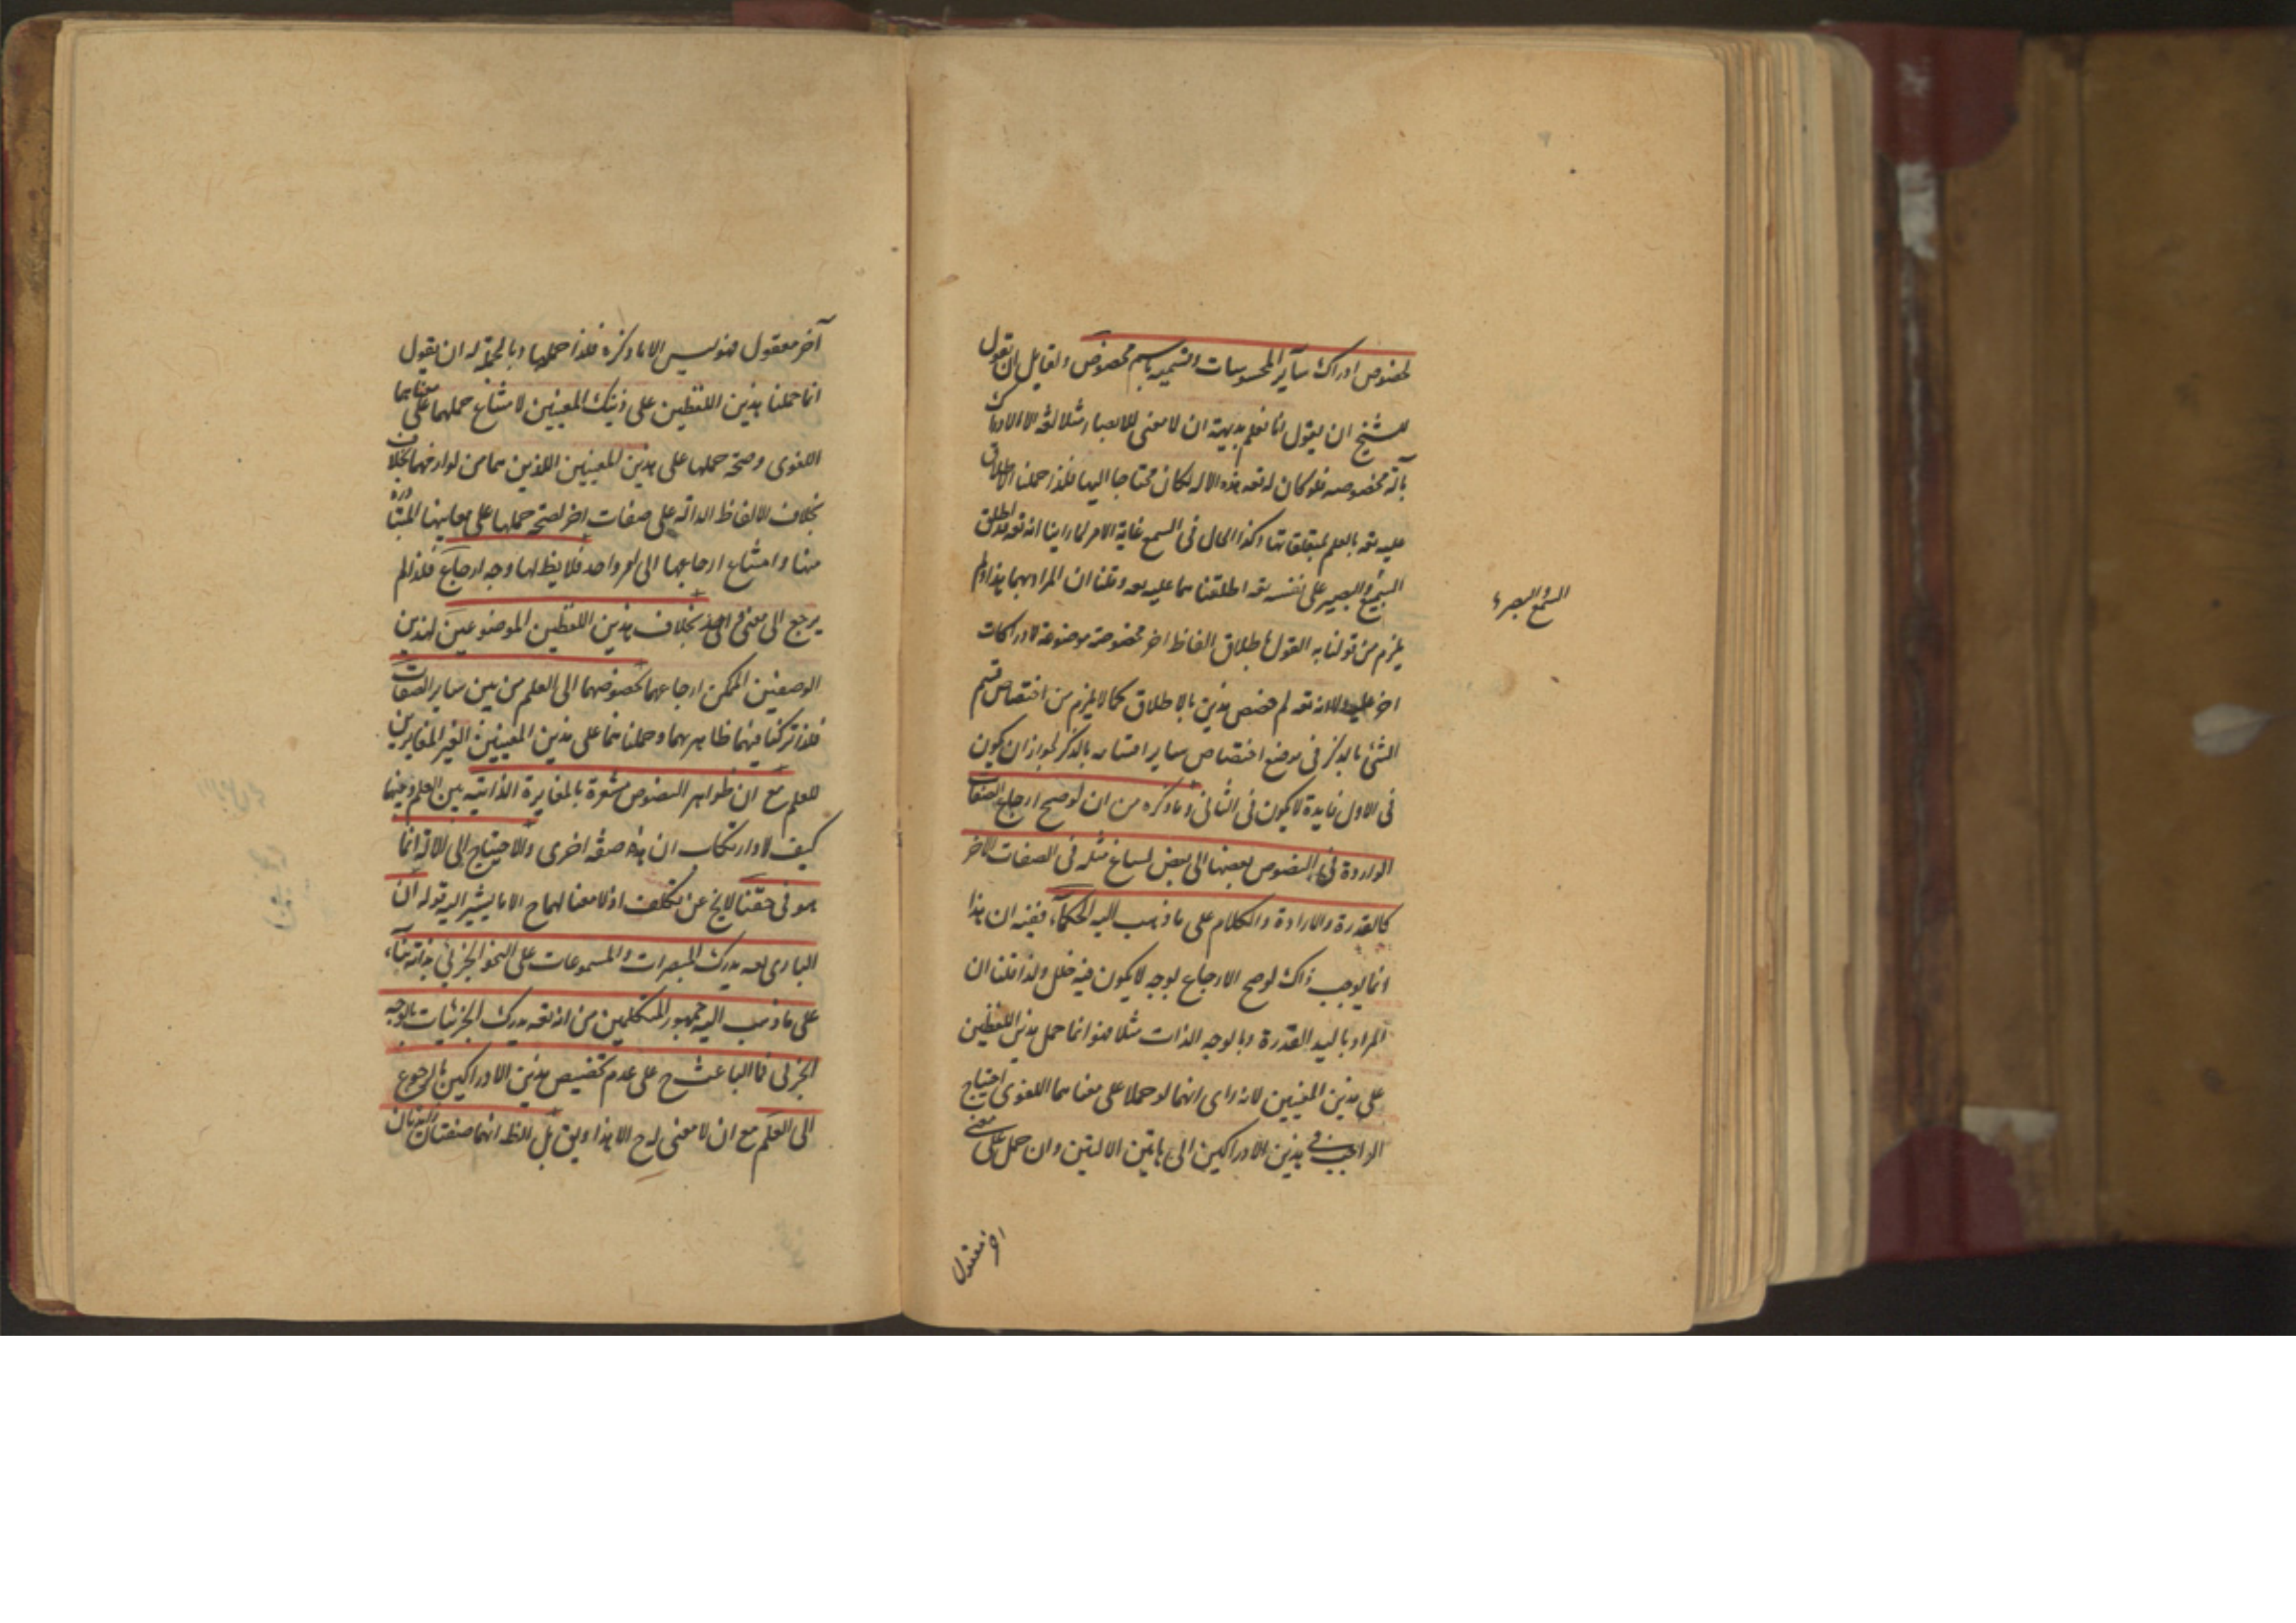 لخصوص ادراك سآير المحسوسات وتسميه باسم مخصوص ولقايل ان يقول
للشيخ ان يقول انا نعلم بديهة ان لا معنى للابصار مثلا لغة الا الادراك
بآلة مخصوصه فلو كان له تعه هذه الاله لكان محتاجا اليها فلذا حملنا الاطلاق
عليه تعه بالعلم بمتعلقاتها وكذا الحال فى السمع غاية الامر لما راينا انه تعه اطلق
السميع والبصير على نفسه تعه اطلقناهما عليه تعه وقلنا ان المراد بهما هذا ولم
يلزم من قولنا به القول باطلاق الفاظ اخر مخصوصة موضوعة لادراكات
اخر عليه لانه تعه لم خصص هذين بالاطلاق كما لا يلزم من اختصاص قسم
الشئ بالذكر فى موضع اختصاص ساير اقسامه بالذكر لجواز ان يكون
فى الاول فايدة لا يكون فى الثانى وما ذكره من ان لو صح ارجاع الصفات
الواردة فى النصوص بعضها الى بعض لساغ مثله فى الصفات الاخر
كالقدرة والارادة والكلام على ما ذهب اليه الحكمآء ففيه ان هذا
انما يوجب ذاك لو صح الارجاع بوجه لا يكون فيه خلل ولذا قلنا ان
المراد باليد القدرة وبالوجه الذات مثلا فهو انما حمل هذين اللفظين
على هذين المعنيين لانه راى انهما لو حملا على معناهما اللغوى احتياج
الواجب فى هذين الادراكين الى هاتين الالتين وان حمل على معنى
اخر معقول
السمع والبصر
آخر معقول فهو ليس الا ما ذكره فلذا حملها وبالجملة له ان يقول
انما حملنا هذين اللفظين على ذينك المعنيين لامتناع حملهما على معناهما
اللغوى وصحة حملها على هذين المعنيين اللذين هما من لوازمهما بخلاف
بخلاف الالفاظ الدالة على صفات اخر لصحة حملها على معانيها المتبادرة
منها وامتناع ارجاعها الى امر واحد فلا يظ لها وجه ارجاع فلذا لم
يرجع الى معنى واحد بخلاف هذين اللفظين الموضوعين لهذين
الوصفين الممكن ارجاعهما بخصوصهما الى العلم من بين ساير الصفات
فلذا تركنا فيهما ظاهرهما وحملناهما على هذين المعنيين الغير المغايرين
للعلم مع ان ظواهر النصوص مشعرة بالمغايرة الذاتيه بين العلم وبينهما
كيف لا وارتكاب ان هذه صفة اخرى والاحتياج الى الالة انما
هو فى حقنا لايخ عن تكلف اذ لا معنا لهما ح الا ما يشير اليه قوله ان
البارى تعه يدرك المبصرات والمسموعات على النحو الجزئي بذاته بنآء
على ما ذهب اليه جمهور المتكلمين من انه تعه يدرك الجزئيات بالوجه
الجزئى فما الباعث ح على عدم تخصيص هذين الادراكين بالرجوع
الى العلم مع ان لا معنى له ح الا هذا ويق بل الظ انهما صفتان